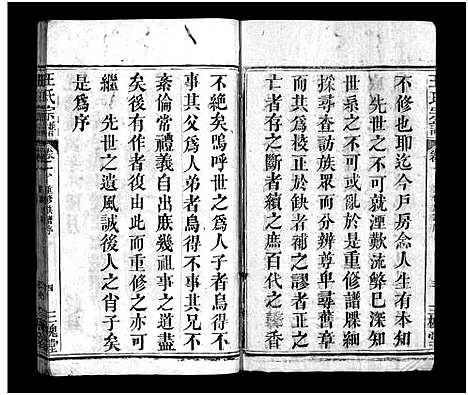 不修也於迄今戶房念人生有本知
先世之不可就湮歎流弊已深知
世系之不可無徵重修譜牒細
採尋查訪族眾而分辨尊卑舊章
有訛者正於缺者補之謬者正之
亡者存之斷者續之庶百代之馨香
不絕矣嗚呼世之為人子者烏得不
事其父為人弟者烏得不事其兄不
紊倫常禮義自出庶幾祖事之道盡
矣後有作者復由此而重修之亦可
繼先世之遺風誠後人之肖子矣
是為序
王氏宗譜
卷之
重修族譜序
四
三槐堂
王氏宗譜
三槐堂